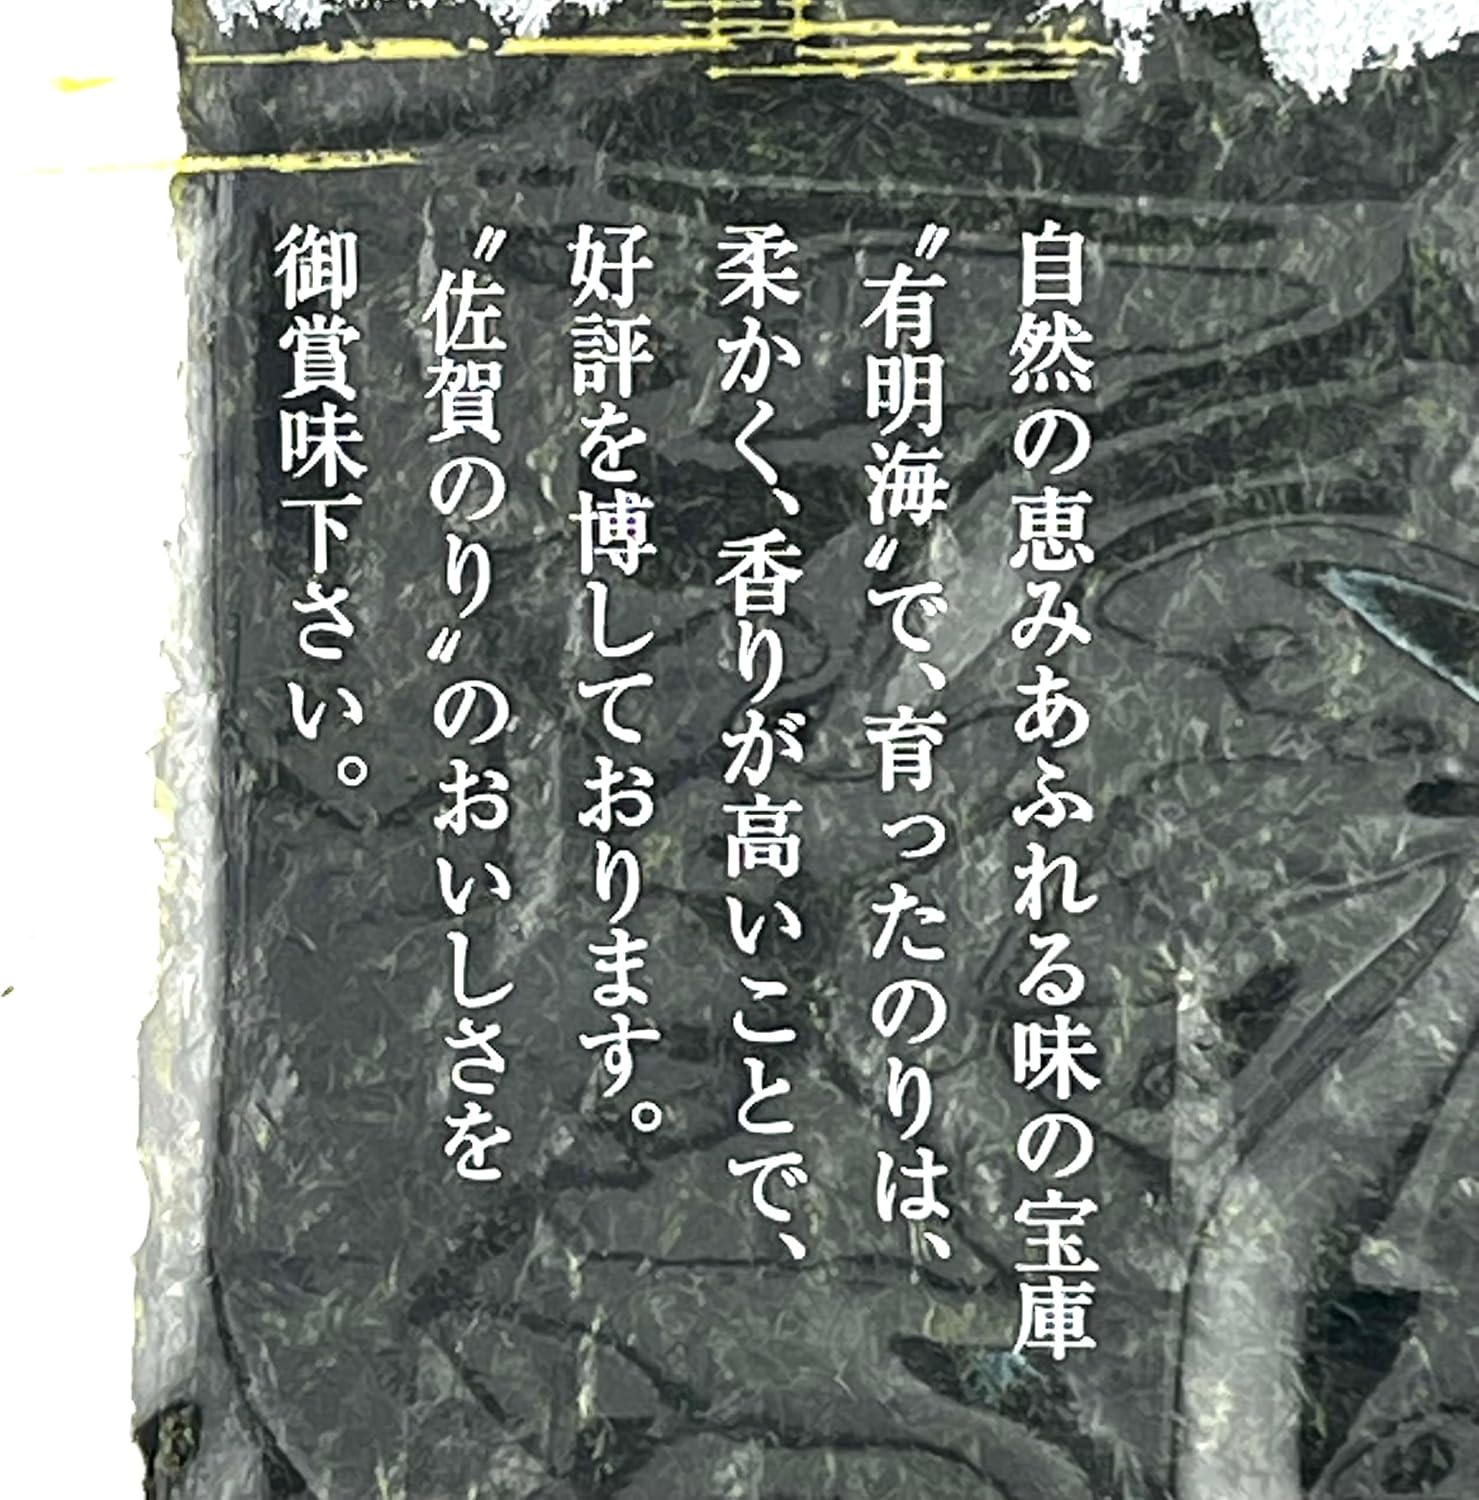 自然の恵みあふれる味の宝庫
〝有明海〟で、育ったのりは、
柔かく、香りが高いことで、
好評を博しております。
〝佐賀のり〟のおいしさを
御賞味下さい。